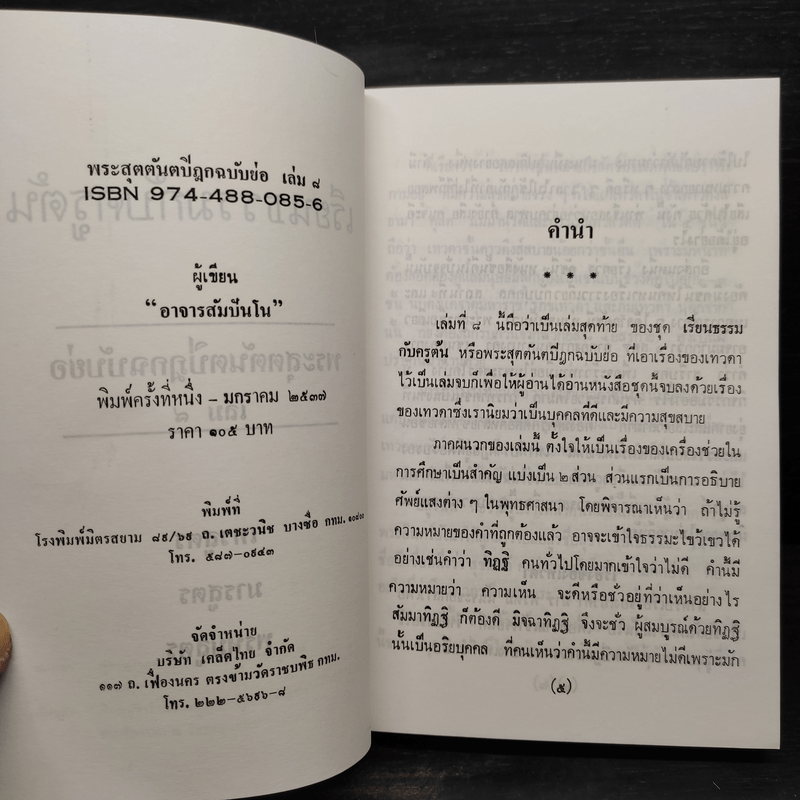 พระสุตตันตปิฎกฉบับย่อ เล่ม ๘
ISBN 974-488-085-6
ผู้เขียน
“อาจารสัมปันโน”
พิมพ์ครั้งที่หนึ่ง – มกราคม ๒๕๓๗
ราคา ๑๐๕ บาท
พิมพ์ที่
โรงพิมพ์มิตรสยาม ๘๙/๖๙ ถ. เตชะวนิช บางซื่อ กทม. ๑๐๘๐๐
โทร. ๕๘๗-๐๙๔๓
จัดจำหน่าย
บริษัท เคล็ดไทย จำกัด
๑๑๗ ถ. เฟื่องนคร ตรงข้ามวัดราชบพิธ กทม.
โทร. ๒๒๒-๕๖๙๖-๘
คำนำ
* * *
เล่มที่ ๘ นี้ถือว่าเป็นเล่มสุดท้าย ของชุด เรียนธรรม
กับครูต้น หรือพระสุตตันตปิฎกฉบับย่อ ที่เอาเรื่องของเทวดา
ไว้เป็นเล่มจบก็เพื่อให้ผู้อ่านได้อ่านหนังสือชุดนี้จบลงด้วยเรื่อง
ของเทวดาซึ่งเรานิยมว่าเป็นบุคคลที่ดีและมีความสุขสบาย
ภาคผนวกของเล่มนี้ ตั้งใจให้เป็นเรื่องของเครื่องช่วยใน
การศึกษาเป็นสำคัญ แบ่งเป็น ๒ ส่วน ส่วนแรกเป็นการอธิบาย
ศัพย์แสงต่าง ๆ ในพุทธศาสนา โดยพิจารณาเห็นว่า ถ้าไม่รู้
ความหมายของคำที่ถูกต้องแล้ว อาจจะเข้าใจธรรมะไขว้เขวได้
อย่างเช่นคำว่า ทิฏฐิ คนทั่วไปโดยมากเข้าใจว่าไม่ดี คำนี้มี
ความหมายว่า ความเห็น จะดีหรือชั่วอยู่ที่ว่าเห็นอย่างไร
สัมมาทิฏฐิ ก็ต้องดี มิจฉาทิฏฐิ จึงจะชั่ว ผู้สมบูรณ์ด้วยทิฏฐิ
นั้นเป็นอริยบุคคล ที่คนเห็นว่าคำนี้มีความหมายไม่ดีเพราะมัก
(๕)